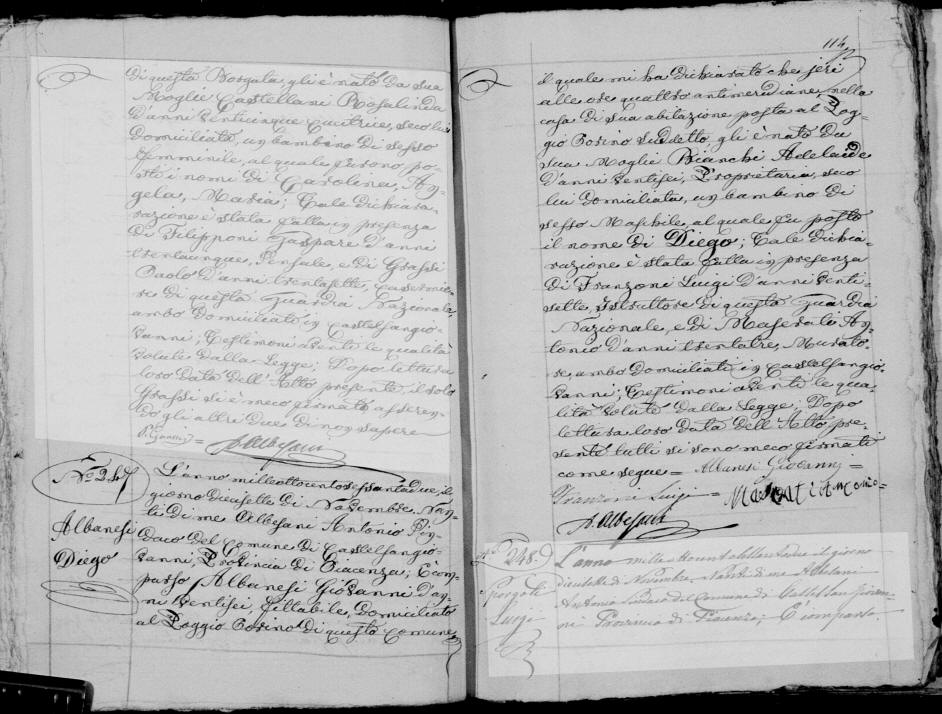 di questa Borgata, gli è nato da sua
Moglie Castellani Rosalinda
d'anni venticinque Cucitrice, seco lui
domiciliata, un bambino di sesso
femminile, al quale furono po-
sto i nomi di Carolina, An-
gela, Maria; Tale dichia-
razione è stata fatta in presenza
di Filipponi Gaspare d'anni
trentacinque, Sensale, e di Grassi
Paolo d'anni trentasette,
re di questa Guardia Nazionale,
ambo domiciliati in Castelsangio-
vanni; Testimoni aventi le qualità
volute dalla Legge; Dopo lettura
loro data dell'Atto presente, il solo
Grassi si è meco firmato asseren-
do gli altri due di non sapere
P. Grassi =
A. Albesani
N.º 247
Albanesi
Diego
L'anno milleottocentosessantadue, il
giorno diecisette di Novembre Nan-
ti di me Albesani Antonio Sin-
daco del Comune di Castelsangio-
vanni, Provincia di Piacenza; È com-
parso Albanesi Giovanni d'an-
ni ventisei, Fittabile, domiciliato
al Poggio Bosino di questo Comune,
114
il quale mi ha dichiarato che jeri
alle ore quattro antimeridiane, nella
casa di sua abitazione posta al Pog-
gio Bosino suddetto, gli è nato da
sua Moglie Bianchi Adelaide
d'anni ventisei, Proprietaria, seco
lui domiciliata, un bambino di
sesso Maschile, al quale fu posto
il nome di Diego; Tale dichia-
razione è stata fatta in presenza
di Franzoni Luigi d'anni venti-
sette, Istruttore di questa Guardia
Nazionale, e di Maserati An-
tonio d'anni trentatre, Murato-
re, ambo domiciliati in Castelsangio-
vanni; Testimoni aventi le qua-
lità volute dalla Legge; Dopo
lettura loro data dell'Atto pre-
sente tutti si sono meco firmati
come segue = Albanesi Giovanni =
Franzoni Luigi = Maserati Antonio =
A. Albesani
N.º 248.
Luigi
L'anno mille ottocento sessantadue il giorno
diecisette di Novembre Nanti di me Albesani
Antonio Sindaco del Comune di Castel San Giovan-
ni Provincia di Piacenza; È comparso